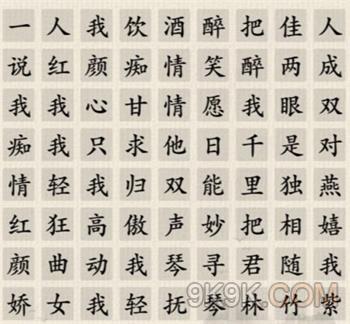 一人我饮酒醉把佳人
说红颜痴情笑醉两成
我我心甘情愿我眼双
痴我只求他日千是对
情轻我归双能里独燕
红狂高傲声妙把相嬉
颜曲动我琴寻君随我
娇女我轻抚琴林竹紫
9K9K.COM